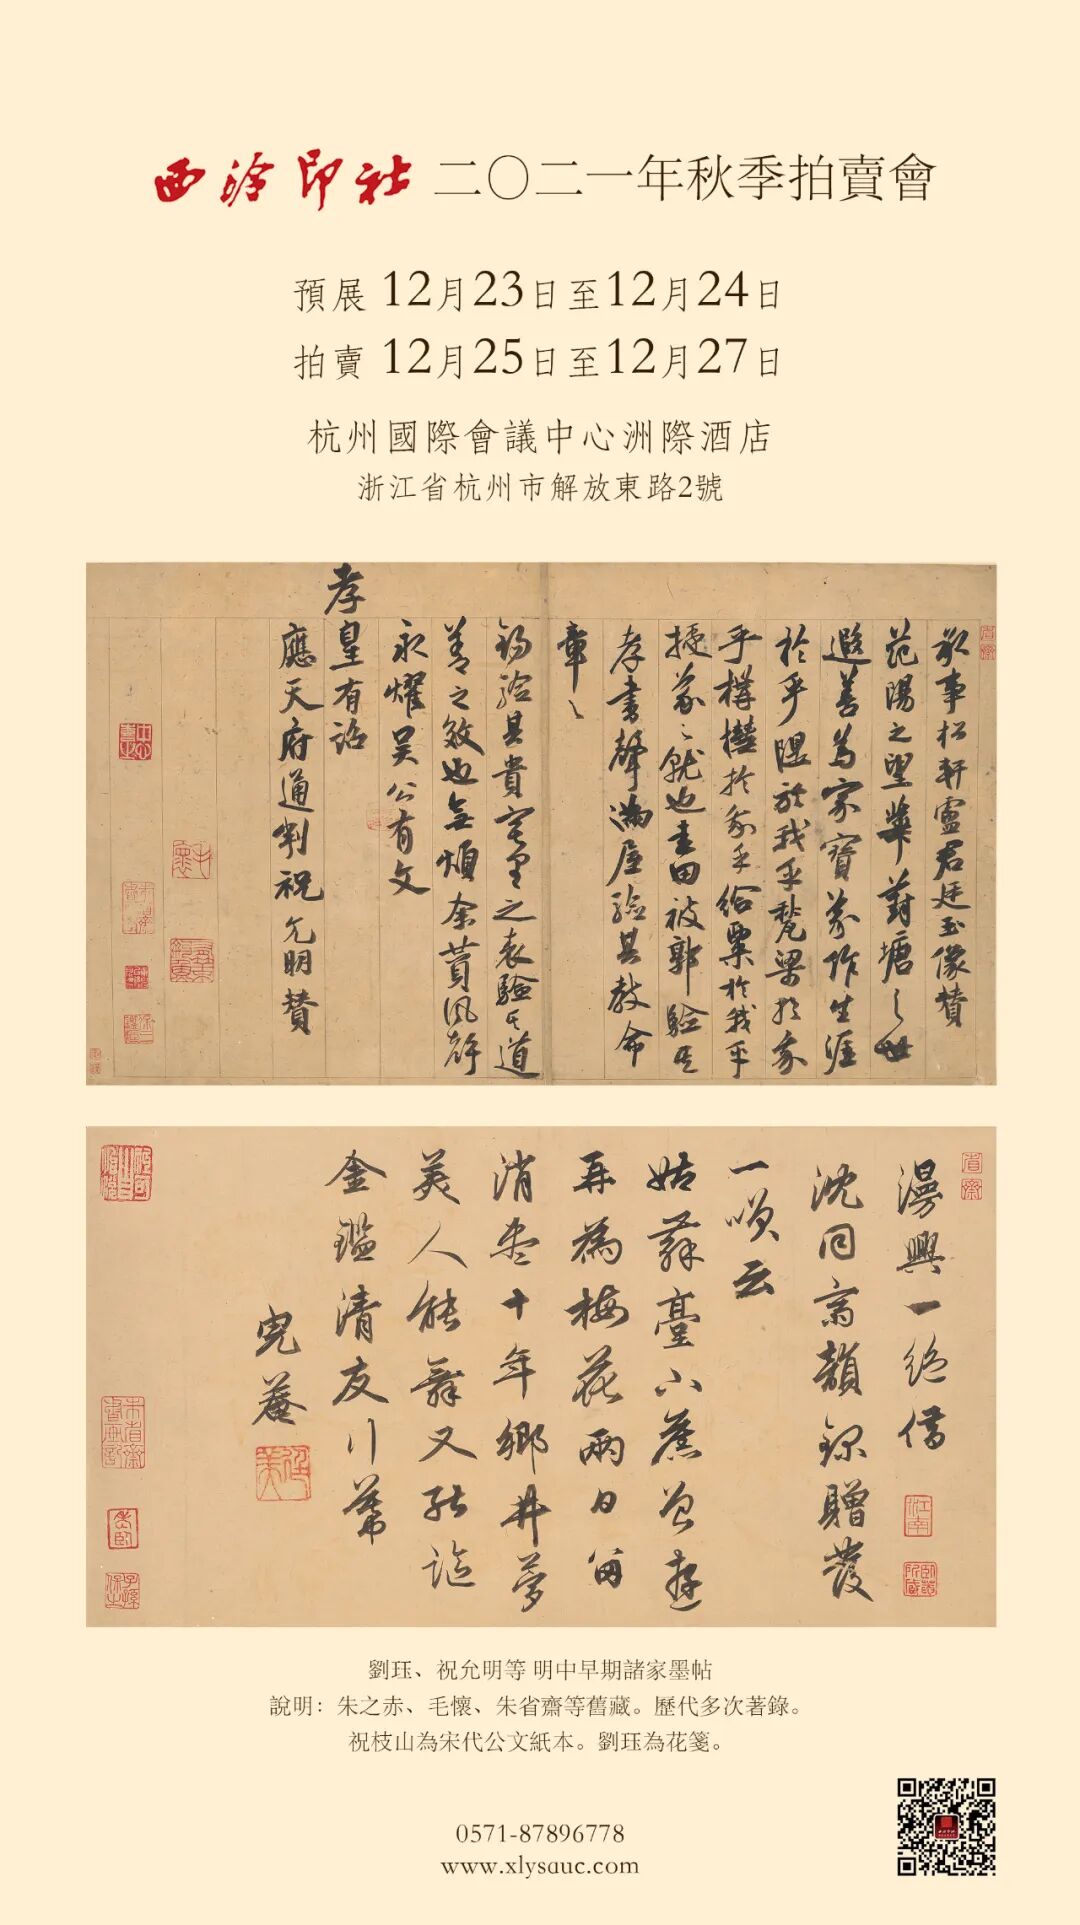 西泠印社 二〇二一年秋季拍賣會
預展 12月23日至12月24日
拍賣 12月25日至12月27日
杭州國際會議中心洲際酒店
浙江省杭州市解放東路2號
敬事松軒盧君廷玉像贊
范陽之望華葑塘之世
遐善為家寶義作生涯
於乎隈於我乎甃梁於我
乎檡櫙於我乎給粟於我乎
孝書聲滿屋驗其教命
章〻
錫驗其貴
善之效也無煩余贊風辭
永燿吴公有文
孝
皇有詔
應天府通判祝允明贊
漫興一絕借
沈同齋韻錄贈發
一嘆云
姑蘇臺下舊曾遊
再為梅花兩日留
消盡十年鄉井夢
美人能舞又能謳
金鑑清友
完菴
劉珏、祝允明等 明中早期諸家墨帖
說明：朱之赤、毛懷、朱省齋等舊藏。歷代多次著錄。
祝枝山為宋代公文紙本。劉珏為花箋。
0571-87896778
www.xlysauc.com